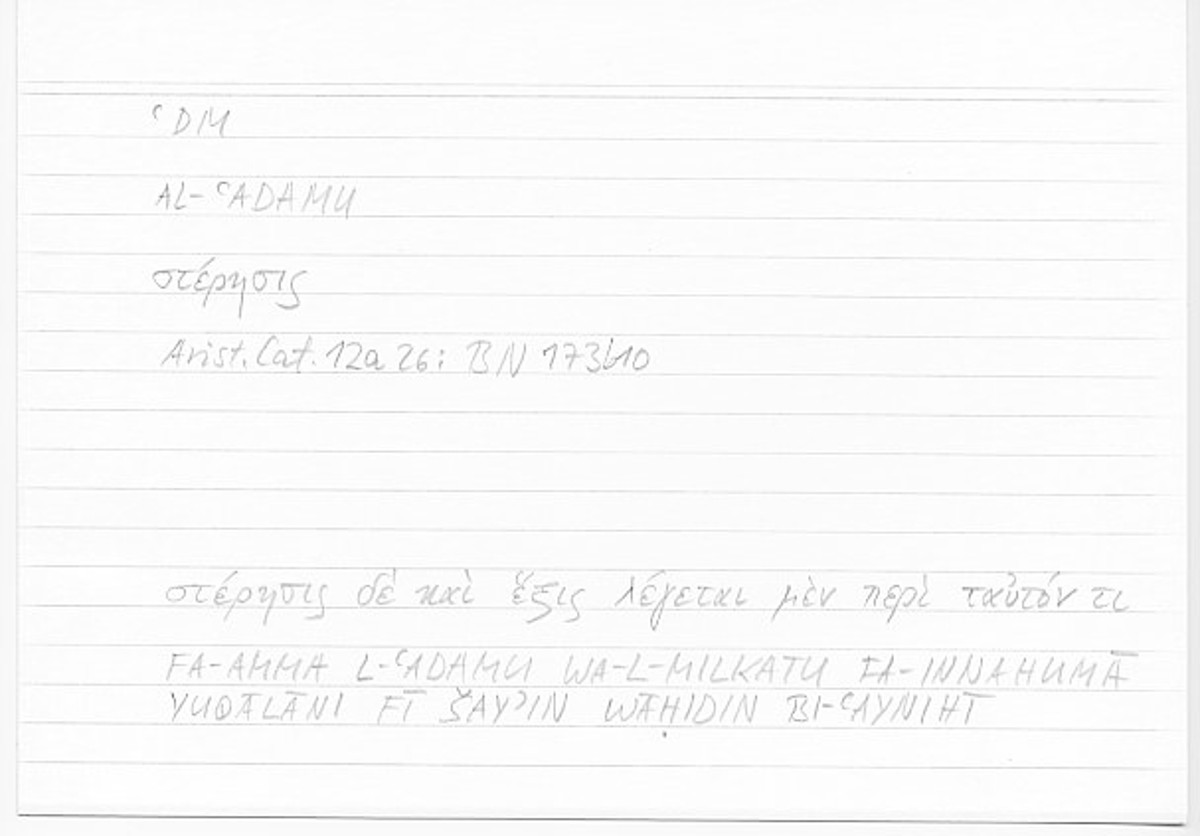 ʿDM
AL-ʿADAMU
στέρησις
Arist. Cat. 12a 26: BN 173b10
στέρησις δὲ καὶ ἕξις λέγεται μὲν περὶ ταὐτόν τι
FA-AMMA L-ʿADAMU WA-L-MILKATU FA-INNAHUMĀ
YUQĀLĀNI FĪ ŠAYʾIN WĀḤIDIN BI-ʿAYNIHĪ